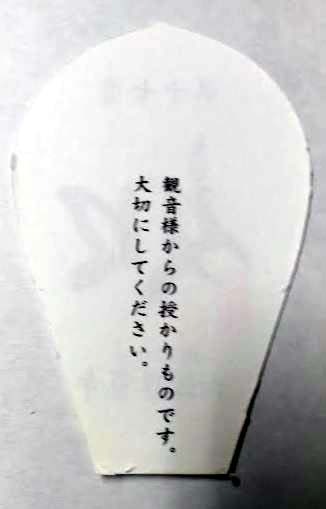 観音様からの授かりものです。
大切にしてください。